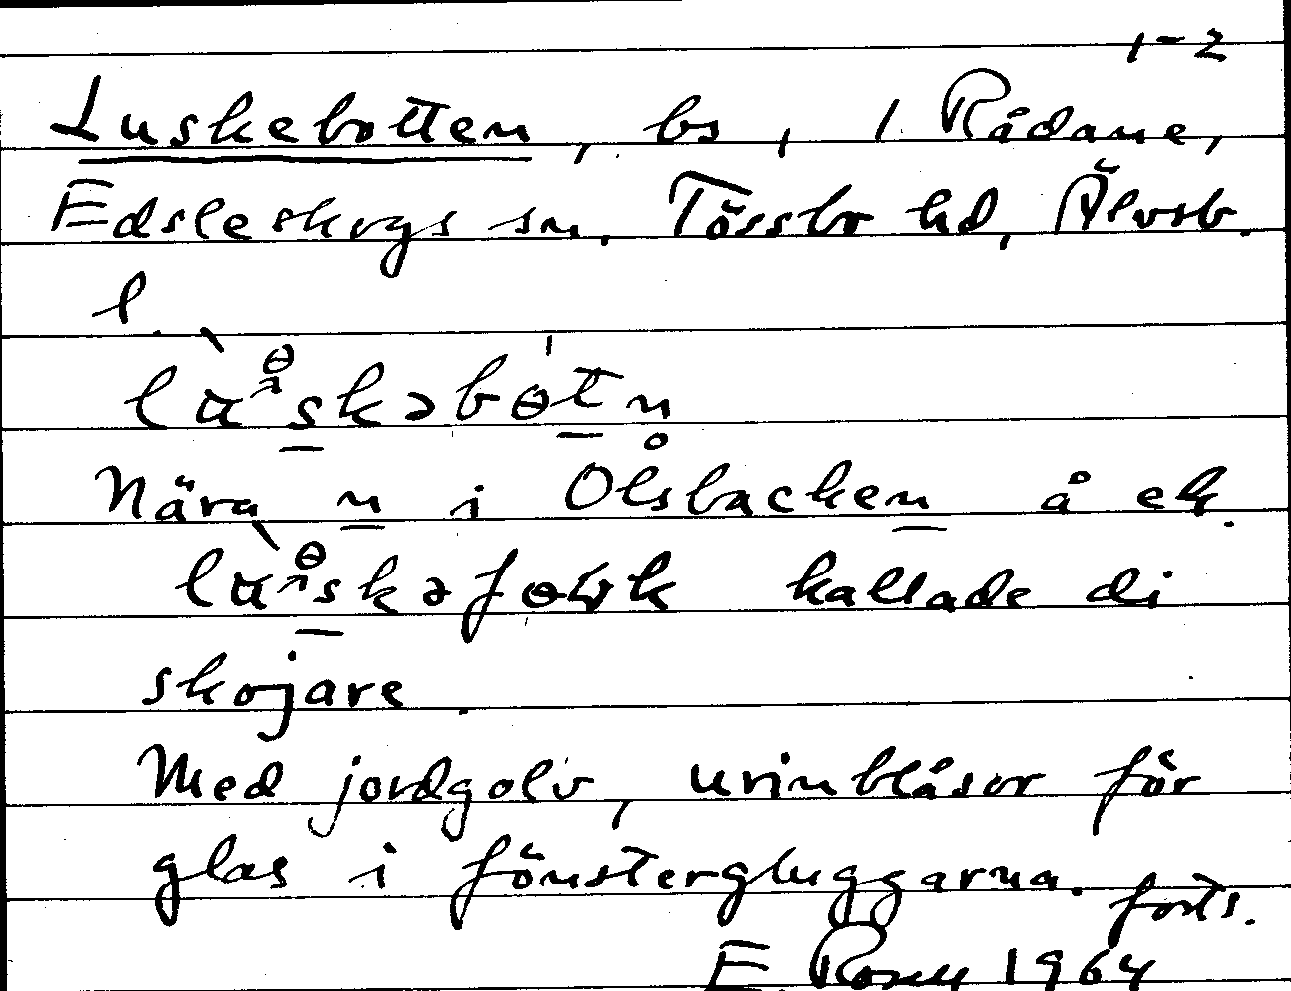 1-2
Luskebotten, bs, 1 Rådane,
Edsleskogs sn. Tössbo hd, Älvsb.
l.
Nära n i Ölsbacken å ek.
kallade di
skojare.
Med jordgolv, urinblåsor för
glas i fönstergluggarna. forts.
E. Rosell 1964